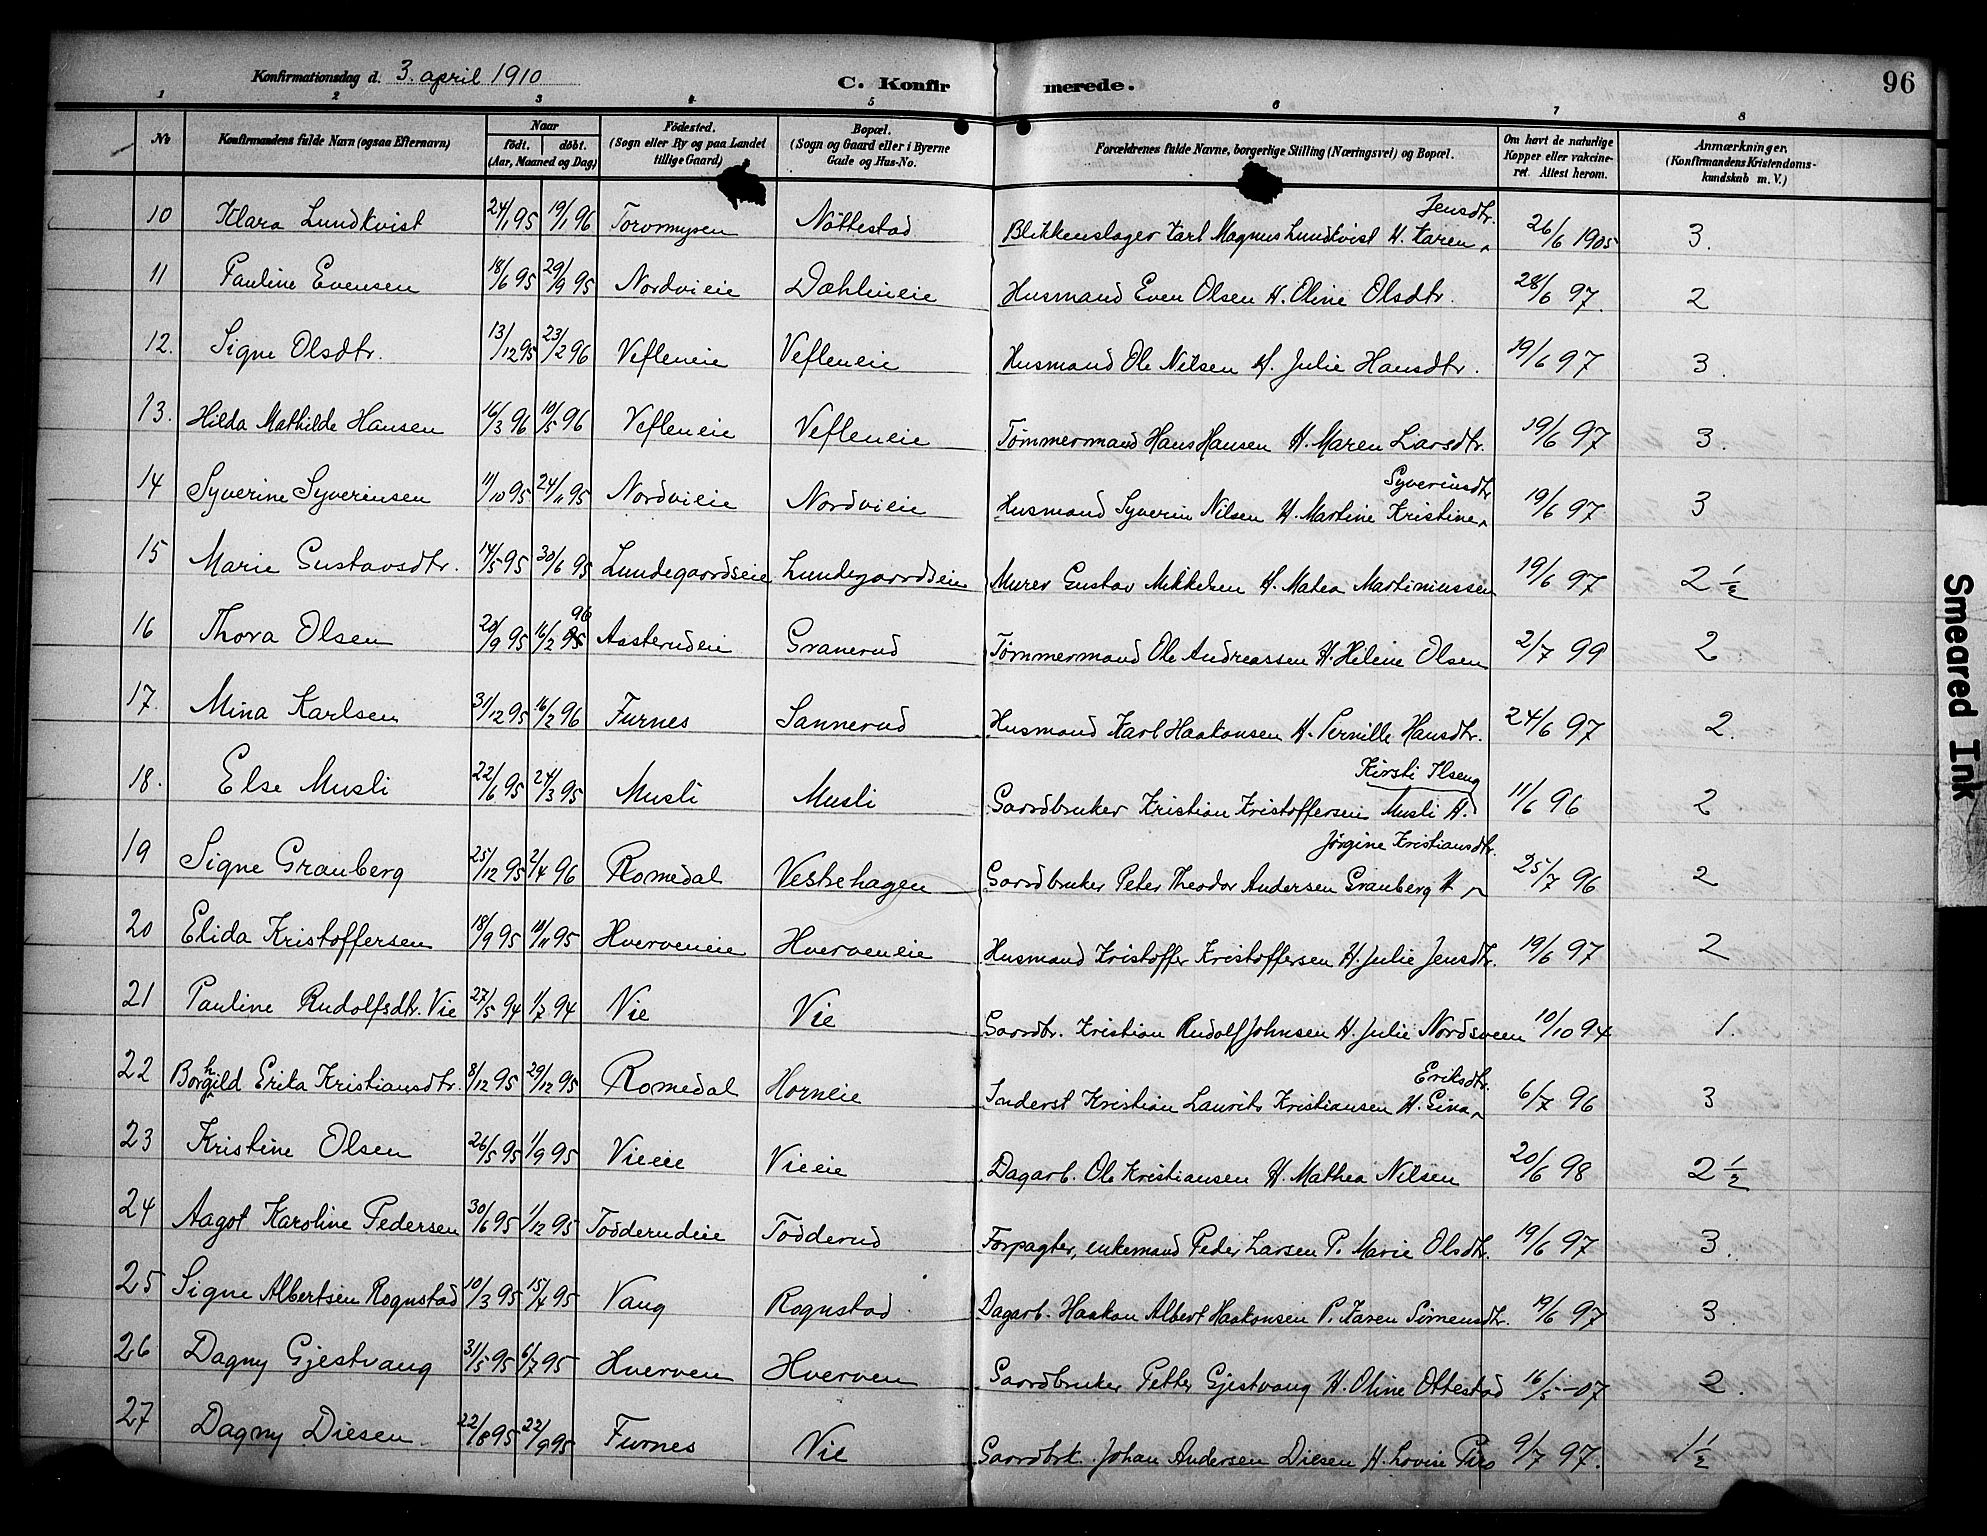 Konfirmationsdag d. 3. april 1910
C. Konfirmerede.
96
1 2 3 4 5 6 7 8
No
Konfirmandens fulde Navn (ogsaa Efternavn)
Naar
født. døbt.
(Aar, Maaned og Dag)
Fødested.
(Sogn eller By og paa Landet
tillige Gaard)
Bopæl.
(Sogn og Gaard eller i Byerne
Gade og Hus-No.
Forældrenes fulde Navne, borgerlige Stilling (Næringsvei) og Bopæl.
Om havt de naturlige
Kopper eller vakcine-
ret. Attest herom.
Anmærkninger.
(Konfirmandens Kristendoms-
kundskab m. V.)
10 Klara Lundkvist 24/1 95 19/1 96 Torvmysen Nøttestad Blikkenslager Karl Magnus Lundkvist H. Karen Jensdtr. 26/6 1905 3.
11 Pauline Evensen 18/6 95 29/9 95 Nordvieie Dæhlineie Husmand Even Olsen H. Oline Olsdtr. 28/6 97. 2
12. Signe Olsdtr. 13/12 95 23/2 96 Vefleneie Vefleneie Husmand Ole Nilsen H. Julie Hansdtr. 19/6 97 3.
13. Hilda Mathilde Hansen 16/3 96 10/5 96 Vefleneie Vefleneie Tømmermand Hans Hansen H. Maren Larsdtr. 19/6 97 3.
14 Syverine Syverinsen 11/10 95 24/11 95 Nordvieie Nordvieie Husmand Syverin Nilsen H. Martine Kristine Syverinsdtr 19/6 97 3
15 Marie Gustavsdtr. 14/5 95 30/6 95 Lundegaardseie Lundegaardseie Murer Gustav Mikkelsen H. Matea Martiniussen 19/6 97 2 1/2
16 Thora Olsen 20/9 95 16/2 96 Aasterudeie Granerud Tømmermand Ole Andreassen H. Helene Olsen 2/7 99 2
17. Mina Karlsen 31/12 95 16/2 96 Furnes Sannerud Husmand Karl Haakonsen H. Pernille Hansdtr. 24/6 97 2.
18. Else Musli 22/6 95 24/3 95 Musli Musli Gaardbruker Kristian Kristoffersen Musli H. Kirsti Ilseng 11/6 96 2
19 Signe Granberg 25/12 95 2/4 96 Romedal Vestehagen Gaardbruker Peter Theodor Andersen Granberg H Jørgine Kristiansdtr. 25/7 96 2
20 Elida Kristoffersen 18/9 95 10/11 95 Hverveneie Hverveneie Husmand Kristoffer Kristoffersen H. Julie Jensdtr. 19/6 97 2
21 Pauline Rudolfsdtr. Vie 27/5 94 1/7 94 Vie Vie Gaardbr. Kristian Rudolf Johnsen H. Julie Nordsveen 10/10 94 1.
22 Borghild Erika Kristiansdtr. 8/12 95 29/12 95 Romedal Horneie Inderst Kristian Laurits Kristiansen H. Gina Eriksdtr. 6/7 96 3
23 Kristine Olsen 26/5 95 1/9 95 Vieeie Vieeie Dagarb. Ole Kristiansen H. Mathea Nilsen 20/6 98 2 1/2
24 Aagot Karoline Pedersen 30/6 95 1/12 95 Tødderudeie Tødderud Forpagter, enkemand Peder Larsen P. Marie Olsdtr. 19/6 97 3.
25 Signe Albertsen Rognstad 10/3 95 15/4 95 Vang Rognstad Dagarb. Haakon Albert Haakonsen P. Karen Simensdtr. 19/6 97 3.
26 Dagny Gjestvang 31/5 95 6/7 95 Hverven Hverven Gaardbruker Petter Gjestvang H. Oline Ottestad 16/5 -07 2.
27 Dagny Diesen 22/8 95 22/9 95 Furnes Vie Gaardbrk. Johan Andersen Diesen H. Lovise 9/7 97. 1 1/2
Smeared Ink